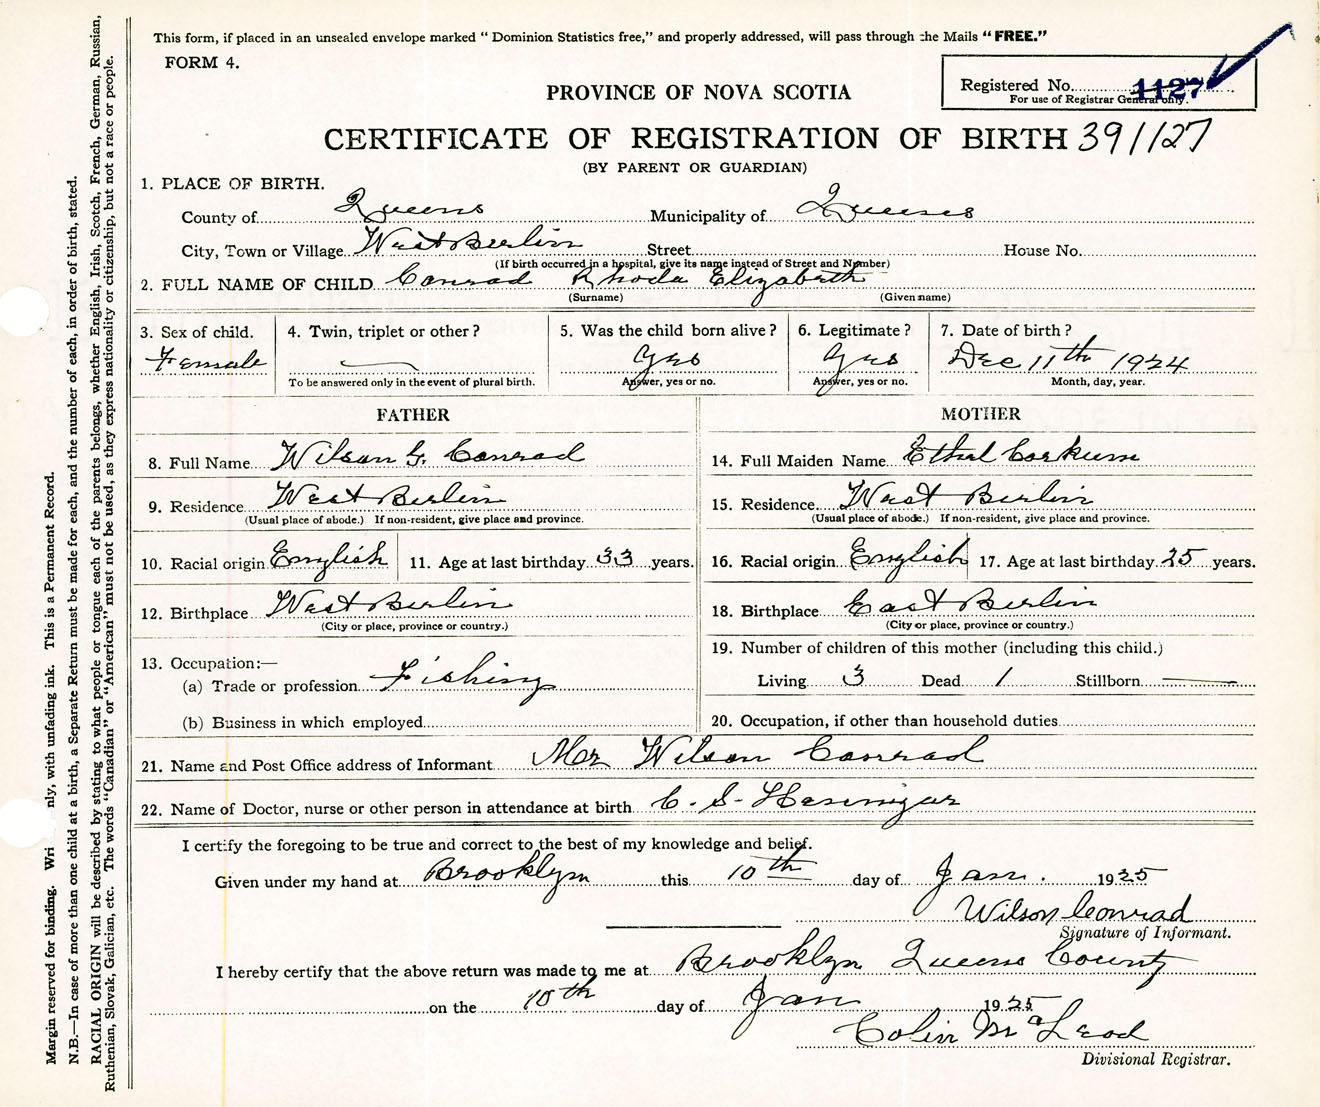 This form, if placed in an unsealed envelope marked “ Dominion Statistics free,” and properly addressed, will pass through the Mails “ FREE.”
FORM 4.
Registered No. 1127
For use of Registrar General only.
PROVINCE OF NOVA SCOTIA
CERTIFICATE OF REGISTRATION OF BIRTH 391127
(BY PARENT OR GUARDIAN)
1. PLACE OF BIRTH.
County of Queens Municipality of Queens
City, Town or Village West Berlin Street House No.
(If birth occurred in a hospital, give its name instead of Street and Number)
2. FULL NAME OF CHILD Conrad Rhoda Elizabeth
(Surname) (Given name)
3. Sex of child. 4. Twin, triplet or other ? 5. Was the child born alive ? 6. Legitimate ? 7. Date of birth ?
Female — yes yes Dec 11th 1924
To be answered only in the event of plural birth. Answer, yes or no. Answer, yes or no. Month, day, year.
FATHER MOTHER
8. Full Name Wilson G. Conrad 14. Full Maiden Name Ethel Corkum
9. Residence West Berlin 15. Residence West Berlin
(Usual place of abode.) If non-resident, give place and province. (Usual place of abode.) If non-resident, give place and province.
10. Racial origin English 11. Age at last birthday 33 years. 16. Racial origin English 17. Age at last birthday 25 years.
12. Birthplace West Berlin 18. Birthplace East Berlin
(City or place, province or country.) (City or place, province or country.)
13. Occupation:— 19. Number of children of this mother (including this child.)
(a) Trade or profession Fishing Living 3 Dead 1 Stillborn —
(b) Business in which employed 20. Occupation, if other than household duties
21. Name and Post Office address of Informant Mr Wilson Conrad
22. Name of Doctor, nurse or other person in attendance at birth C. S.
I certify the foregoing to be true and correct to the best of my knowledge and belief.
Given under my hand at Brooklyn this 10th day of Jan. 1925
Wilson Conrad
Signature of Informant.
I hereby certify that the above return was made to me at Brooklyn Queens County
on the 10th day of Jan 1925
Colin McLeod
Divisional Registrar.
Margin reserved for binding. Wri nly, with unfading ink. This is a Permanent Record.
N.B.—In case of more than one child at a birth, a Separate Return must be made for each, and the number of each, in order of birth, stated.
RACIAL ORIGIN will be described by stating to what people or tongue each of the parents belongs, whether English, Irish, Scotch, French, German, Russian,
Ruthenian, Slovak, Galician, etc. The words “Canadian” or “American” must not be used, as they express nationality or citizenship, but not a race or people.